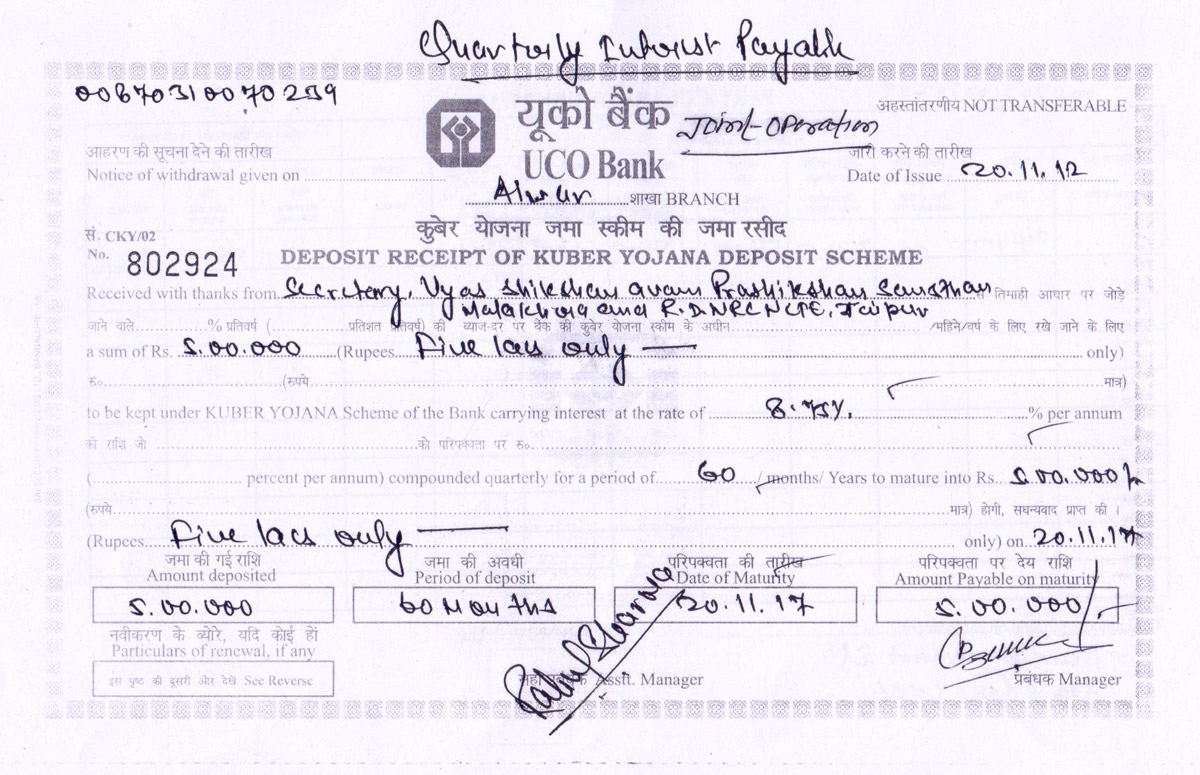 Quarterly Interest Payable
00670310070239
यूको बैंक
UCO Bank
Joint-Operation
अहस्तांतरणीय NOT TRANSFERABLE
आहरण की सूचना देने की तारीख
Notice of withdrawal given on
जारी करने की तारीख
Date of Issue 20.11.12
Alwar शाखा BRANCH
कुबेर योजना जमा स्कीम की जमा रसीद
सं. CKY/02
No. 802924
DEPOSIT RECEIPT OF KUBER YOJANA DEPOSIT SCHEME
Received with thanks from Secretary, Vyas Shikshan avam Prashikshan Sansthan से तिमाही आधार पर जोड़े
and R.D. NRCNCTE, Jaipur
जाने वाले % प्रतिवर्ष ( प्रतिशत प्रतिवर्ष) की ब्याज-दर पर बैंक की कुबेर योजना स्कीम के अधीन /महिने/वर्ष के लिए रखे जाने के लिए
a sum of Rs. 5.00.000 (Rupees Five lacs only only)
रु. (रुपये मात्र)
to be kept under KUBER YOJANA Scheme of the Bank carrying interest at the rate of 8.75%. % per annum
की राशि जो को परिपक्वता पर रु.
( percent per annum) compounded quarterly for a period of 60 /months/ Years to mature into Rs. 5.00.000/-
(रुपये मात्र) होगी, सधन्यवाद प्राप्त की ।
(Rupees Five lacs only only) on 20.11.17
जमा की गई राशि
Amount deposited
5.00.000
जमा की अवधी
Period of deposit
60 Months
परिपक्वता की तारीख
Date of Maturity
20.11.17
परिपक्वता पर देय राशि
Amount Payable on maturity
5.00.000/-
नवीकरण के ब्योरे, यदि कोई हों
Particulars of renewal, if any
इस पृष्ठ की दूसरी ओर देखे See Reverse
Rahul Sharma
सहा प्रबंधक Asstt. Manager
प्रबंधक Manager